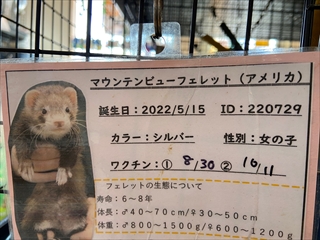 マウンテンビューフェレット（アメリカ）
誕生日：2022/5/15 ID：220729
カラー：シルバー 性別：女の子
ワクチン：① 8/30 ② 10/11
フェレットの生態について
寿命：6～8年
体長：♂40～70cm/♀30～50cm
体重：♂800～1500g/♀600～1200g